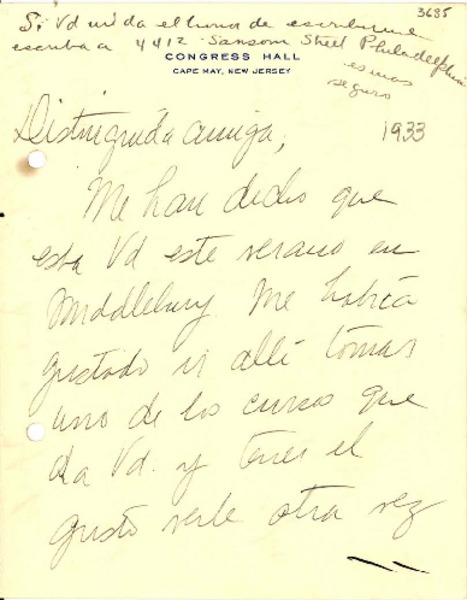 3685
Si Vd me da el honor de escribirme
escriba a 4412 Sansom Street Philadelphia
es mas
seguro
CONGRESS HALL
CAPE MAY, NEW JERSEY
1933
Distinguida amiga,
Me han dicho que
esta Vd este verano en
Middlebury. Me habria
gustado ir allí tomar
uno de los cursos que
da Vd. y tener el
gusto verle otra vez